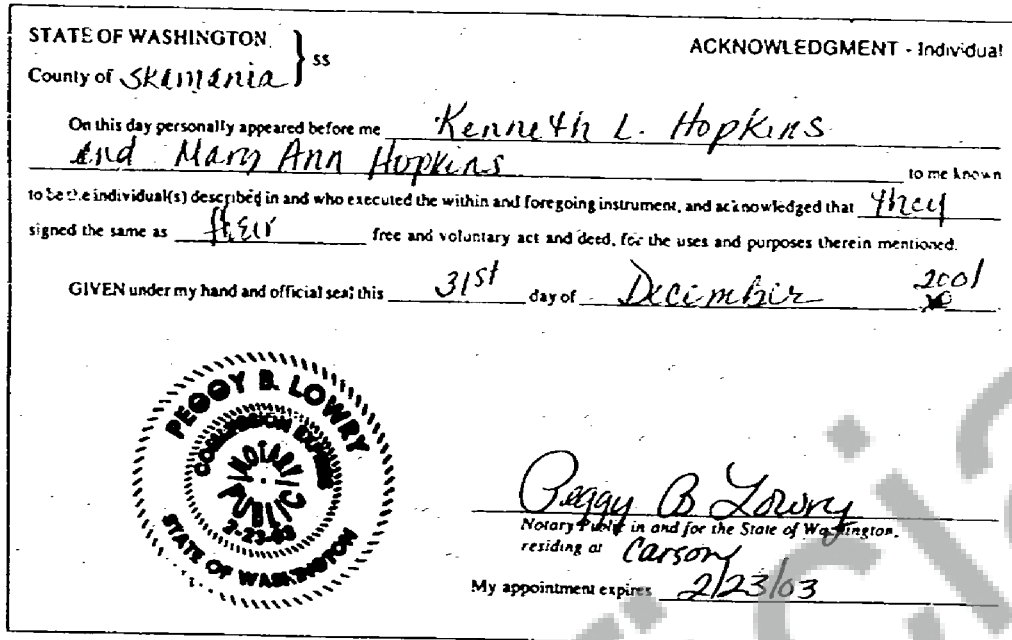 STATE OF WASHINGTON
ss
ACKNOWLEDGMENT - Individual
County of Skamania
On this day personally appeared before me Kenneth L. Hopkins
and Mary Ann Hopkins to me known
to be the individual(s) described in and who executed the within and foregoing instrument, and acknowledged that they
signed the same as their free and voluntary act and deed, for the uses and purposes therein mentioned.
GIVEN under my hand and official seal this 31st day of December 2001
PEGGY B. LOWRY
COMMISSION EXPIRES
NOTARY
PUBLIC
2-23-03
STATE OF WASHINGTON
Peggy B Lowry
Notary Public in and for the State of Washington,
residing at Carson
My appointment expires 2/23/03